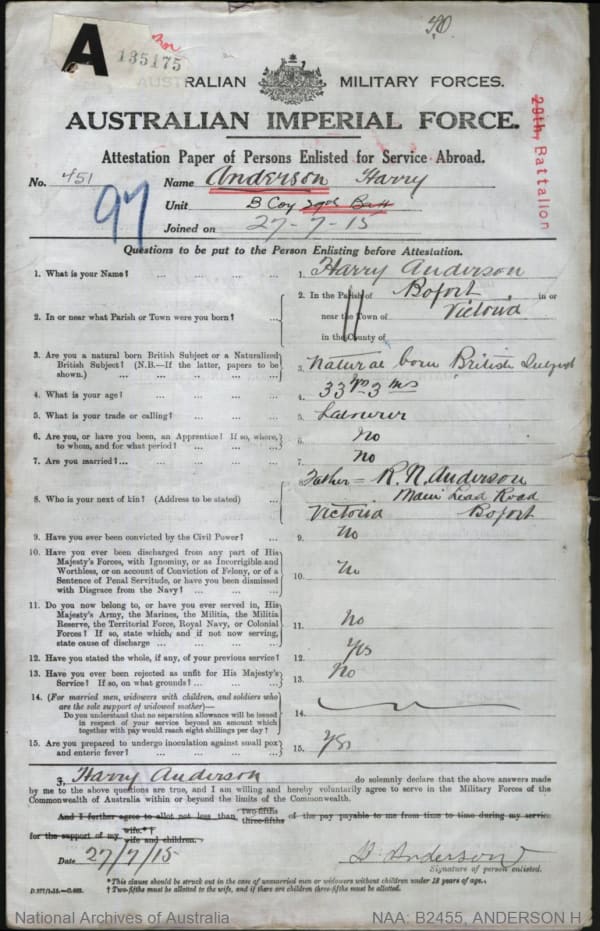 20
A
135175
AUSTRALIAN MILITARY FORCES.
AUSTRALIAN IMPERIAL FORCE.
29th, Battalion
Attestation Paper of Persons Enlisted for Service Abroad.
No. 451 Name Anderson Harry
97
Unit B Coy 29th Batt
Joined on 27-7-15
Questions to be put to the Person Enlisting before Attestation.
1. What is your Name? ... ... ... ... 1. Harry Anderson
2. In or near what Parish or Town were you born? ... 2. In the Parish of Bofort in or
near the Town of Victoria
in the County of
3. Are you a natural born British Subject or a Naturalized
British Subject? (N.B.—If the latter, papers to be
shown.) ... ... ... ... 3. Natural born British Subject
4. What is your age? ... ... ... ... 4. 33 yrs 3 ms
5. What is your trade or calling? ... ... ... 5. Labourer
6. Are you, or have you been, an Apprentice? If so, where,
to whom, and for what period? ... ... ... 6. No
7. Are you married?... ... ... ... ... 7. No
8. Who is your next of kin? (Address to be stated) ... 8. Father = R. N. Anderson
Main Lead Road
Victoria Bofort
9. Have you ever been convicted by the Civil Power? ... 9. No
10. Have you ever been discharged from any part of His
Majesty's Forces, with Ignominy, or as Incorrigible and
Worthless, or on account of Conviction of Felony, or of a
Sentence of Penal Servitude, or have you been dismissed
with Disgrace from the Navy? ... ... ... 10. No
11. Do you now belong to, or have you ever served in, His
Majesty's Army, the Marines, the Militia, the Militia
Reserve, the Territorial Force, Royal Navy, or Colonial
Forces? If so, state which, and if not now serving,
state cause of discharge ... ... ... ... 11. No
12. Have you stated the whole, if any, of your previous service? 12. Yes
13. Have you ever been rejected as unfit for His Majesty's
Service? If so, on what grounds? ... ... ... 13. No
14. (For married men, widowers with children, and soldiers who
are the sole support of widowed mother)—
Do you understand that no separation allowance will be issued
in respect of your service beyond an amount which
together with pay would reach eight shillings per day? 14.
15. Are you prepared to undergo inoculation against small pox
and enteric fever? ... ... ... ... 15. Yes
I, Harry Anderson do solemnly declare that the above answers made
by me to the above questions are true, and I am willing and hereby voluntarily agree to serve in the Military Forces of the
Commonwealth of Australia within or beyond the limits of the Commonwealth.
And I further agree to allot not less than two-fifths three-fifths of the pay payable to me from time to time during my service
for the support of my wife.*† wife and children.
Date 27/7/15 H Anderson
Signature of person enlisted.
*This clause should be struck out in the case of unmarried men or widowers without children under 18 years of age.
† Two-fifths must be allotted to the wife, and if there are children three-fifths must be allotted.
National Archives of Australia NAA: B2455, ANDERSON H